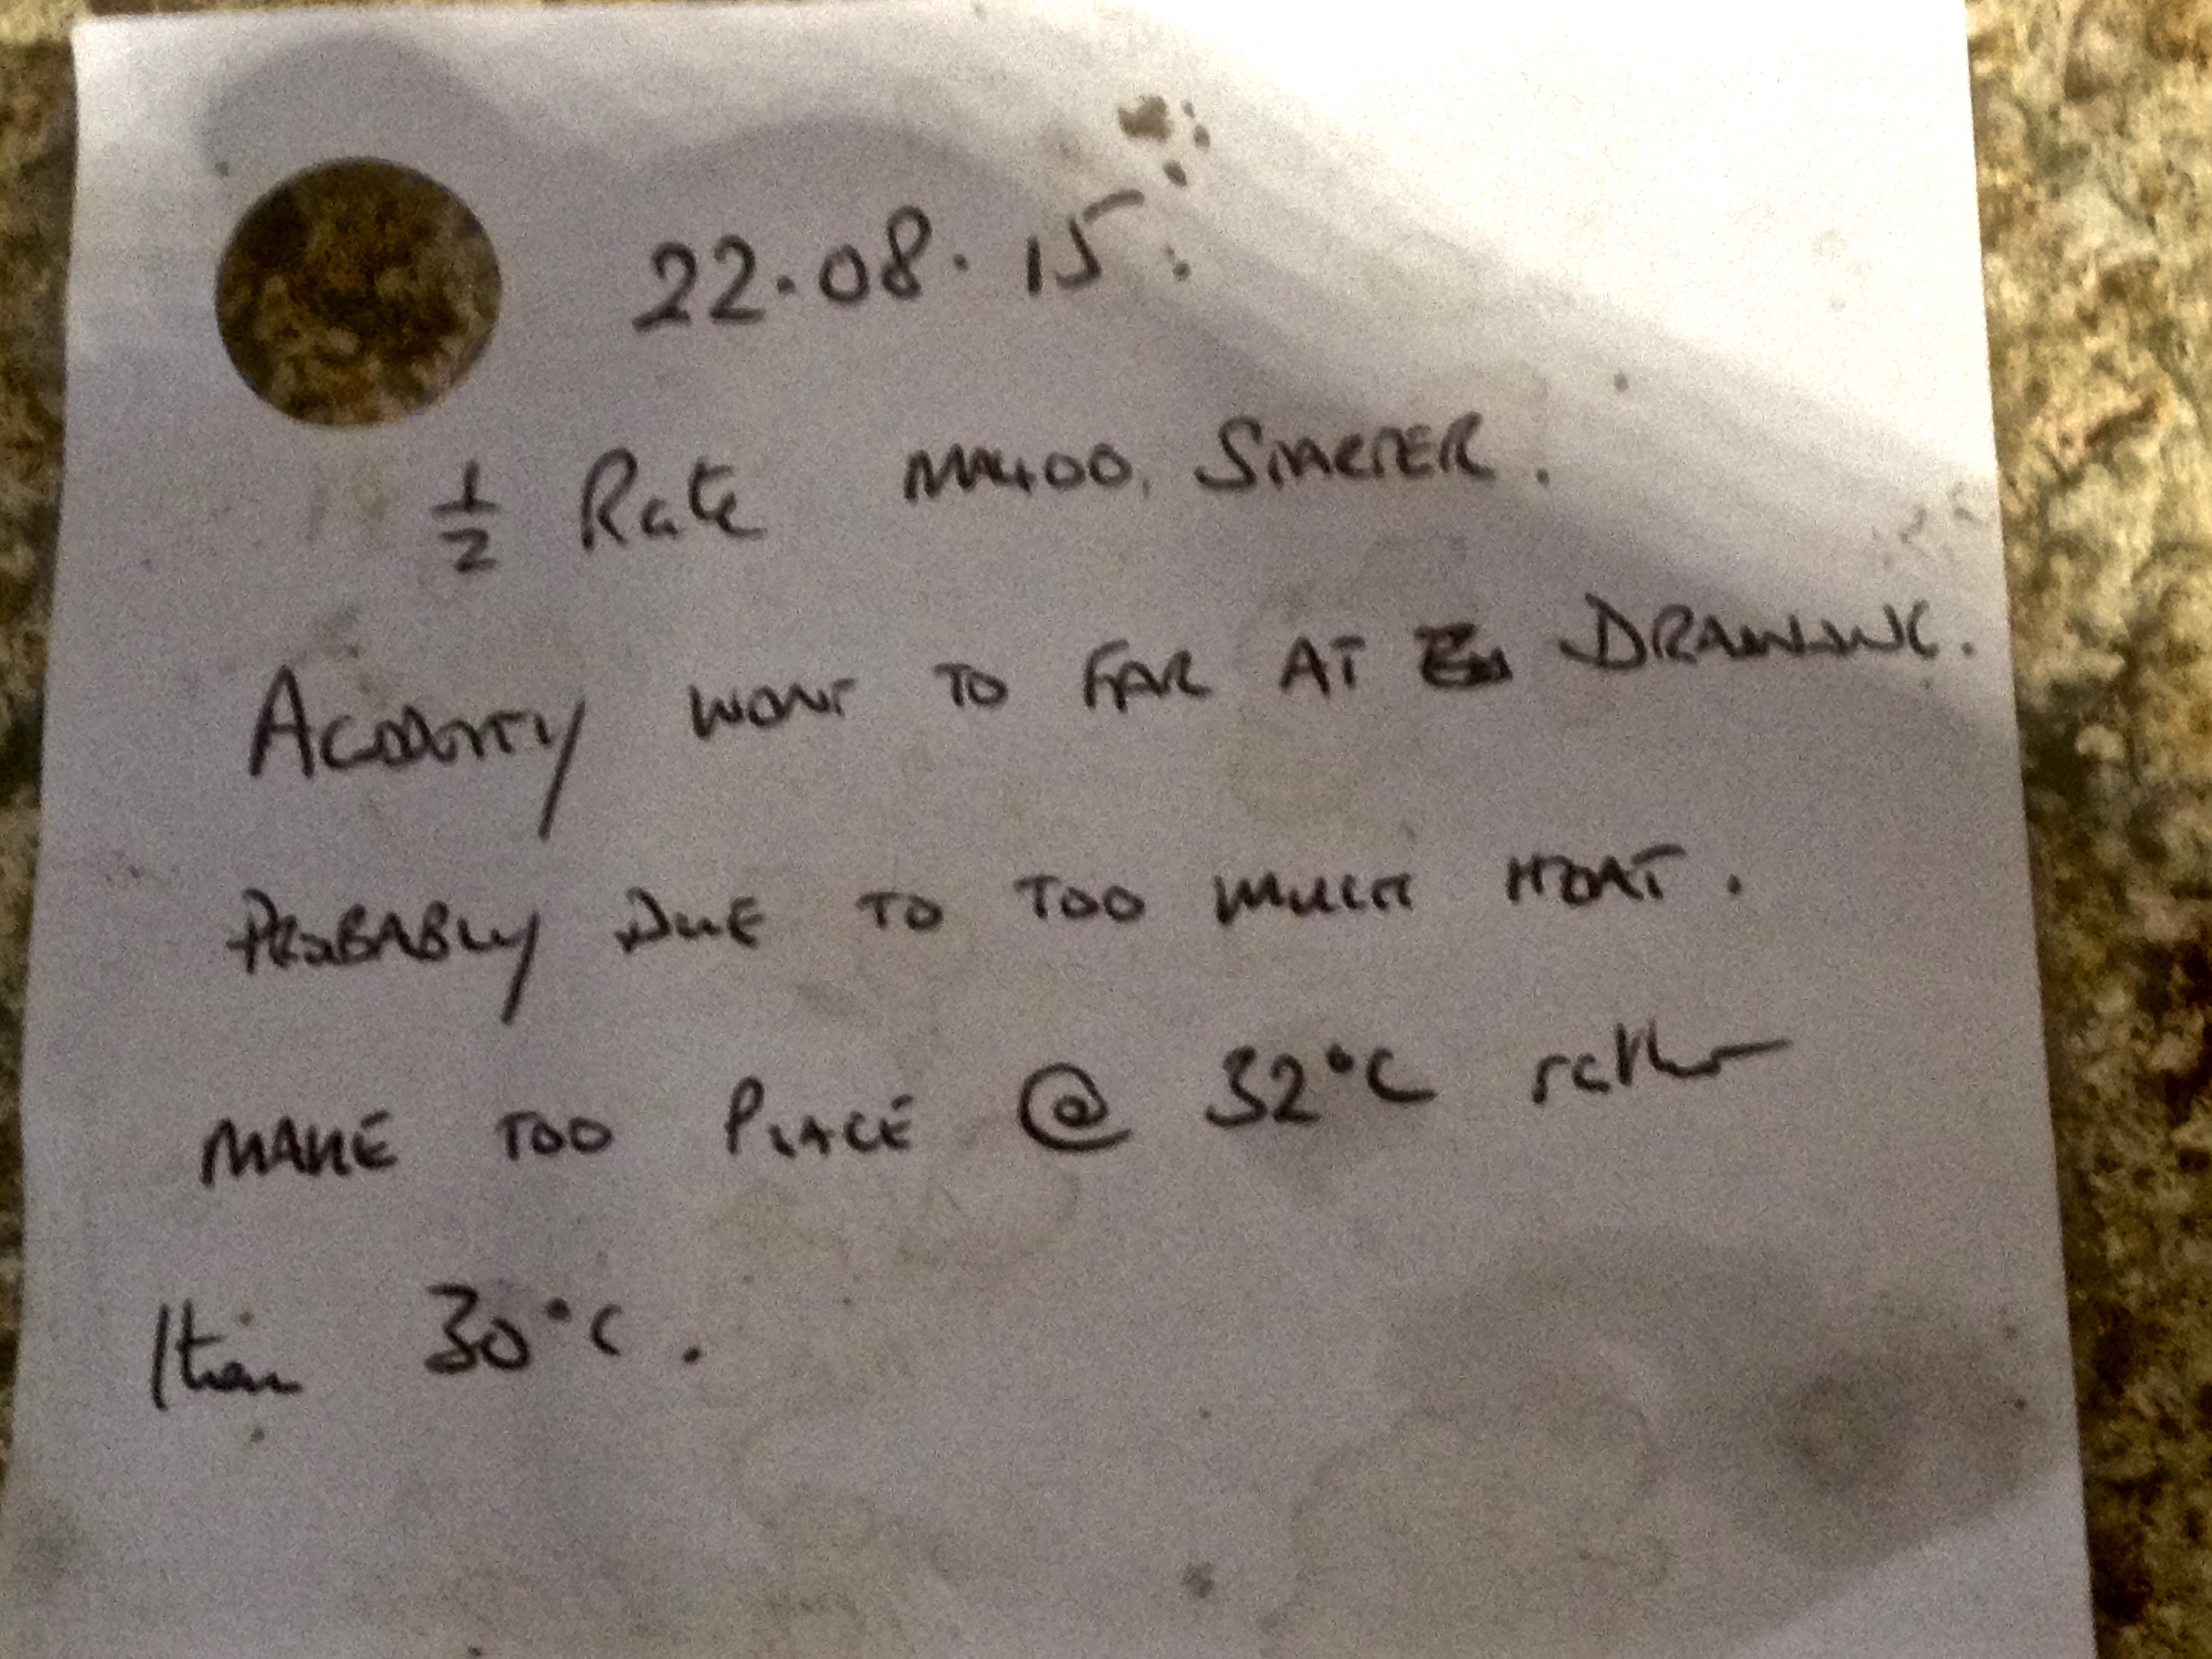 22.08.15
1/2 Rate MA400, STARTER.
ACIDITY WONT TO FAR AT DRAINING.
PROBABLY DUE TO TOO MUCH HEAT.
MAKE TOO PLACE @ 32°C rather
than 30°C.